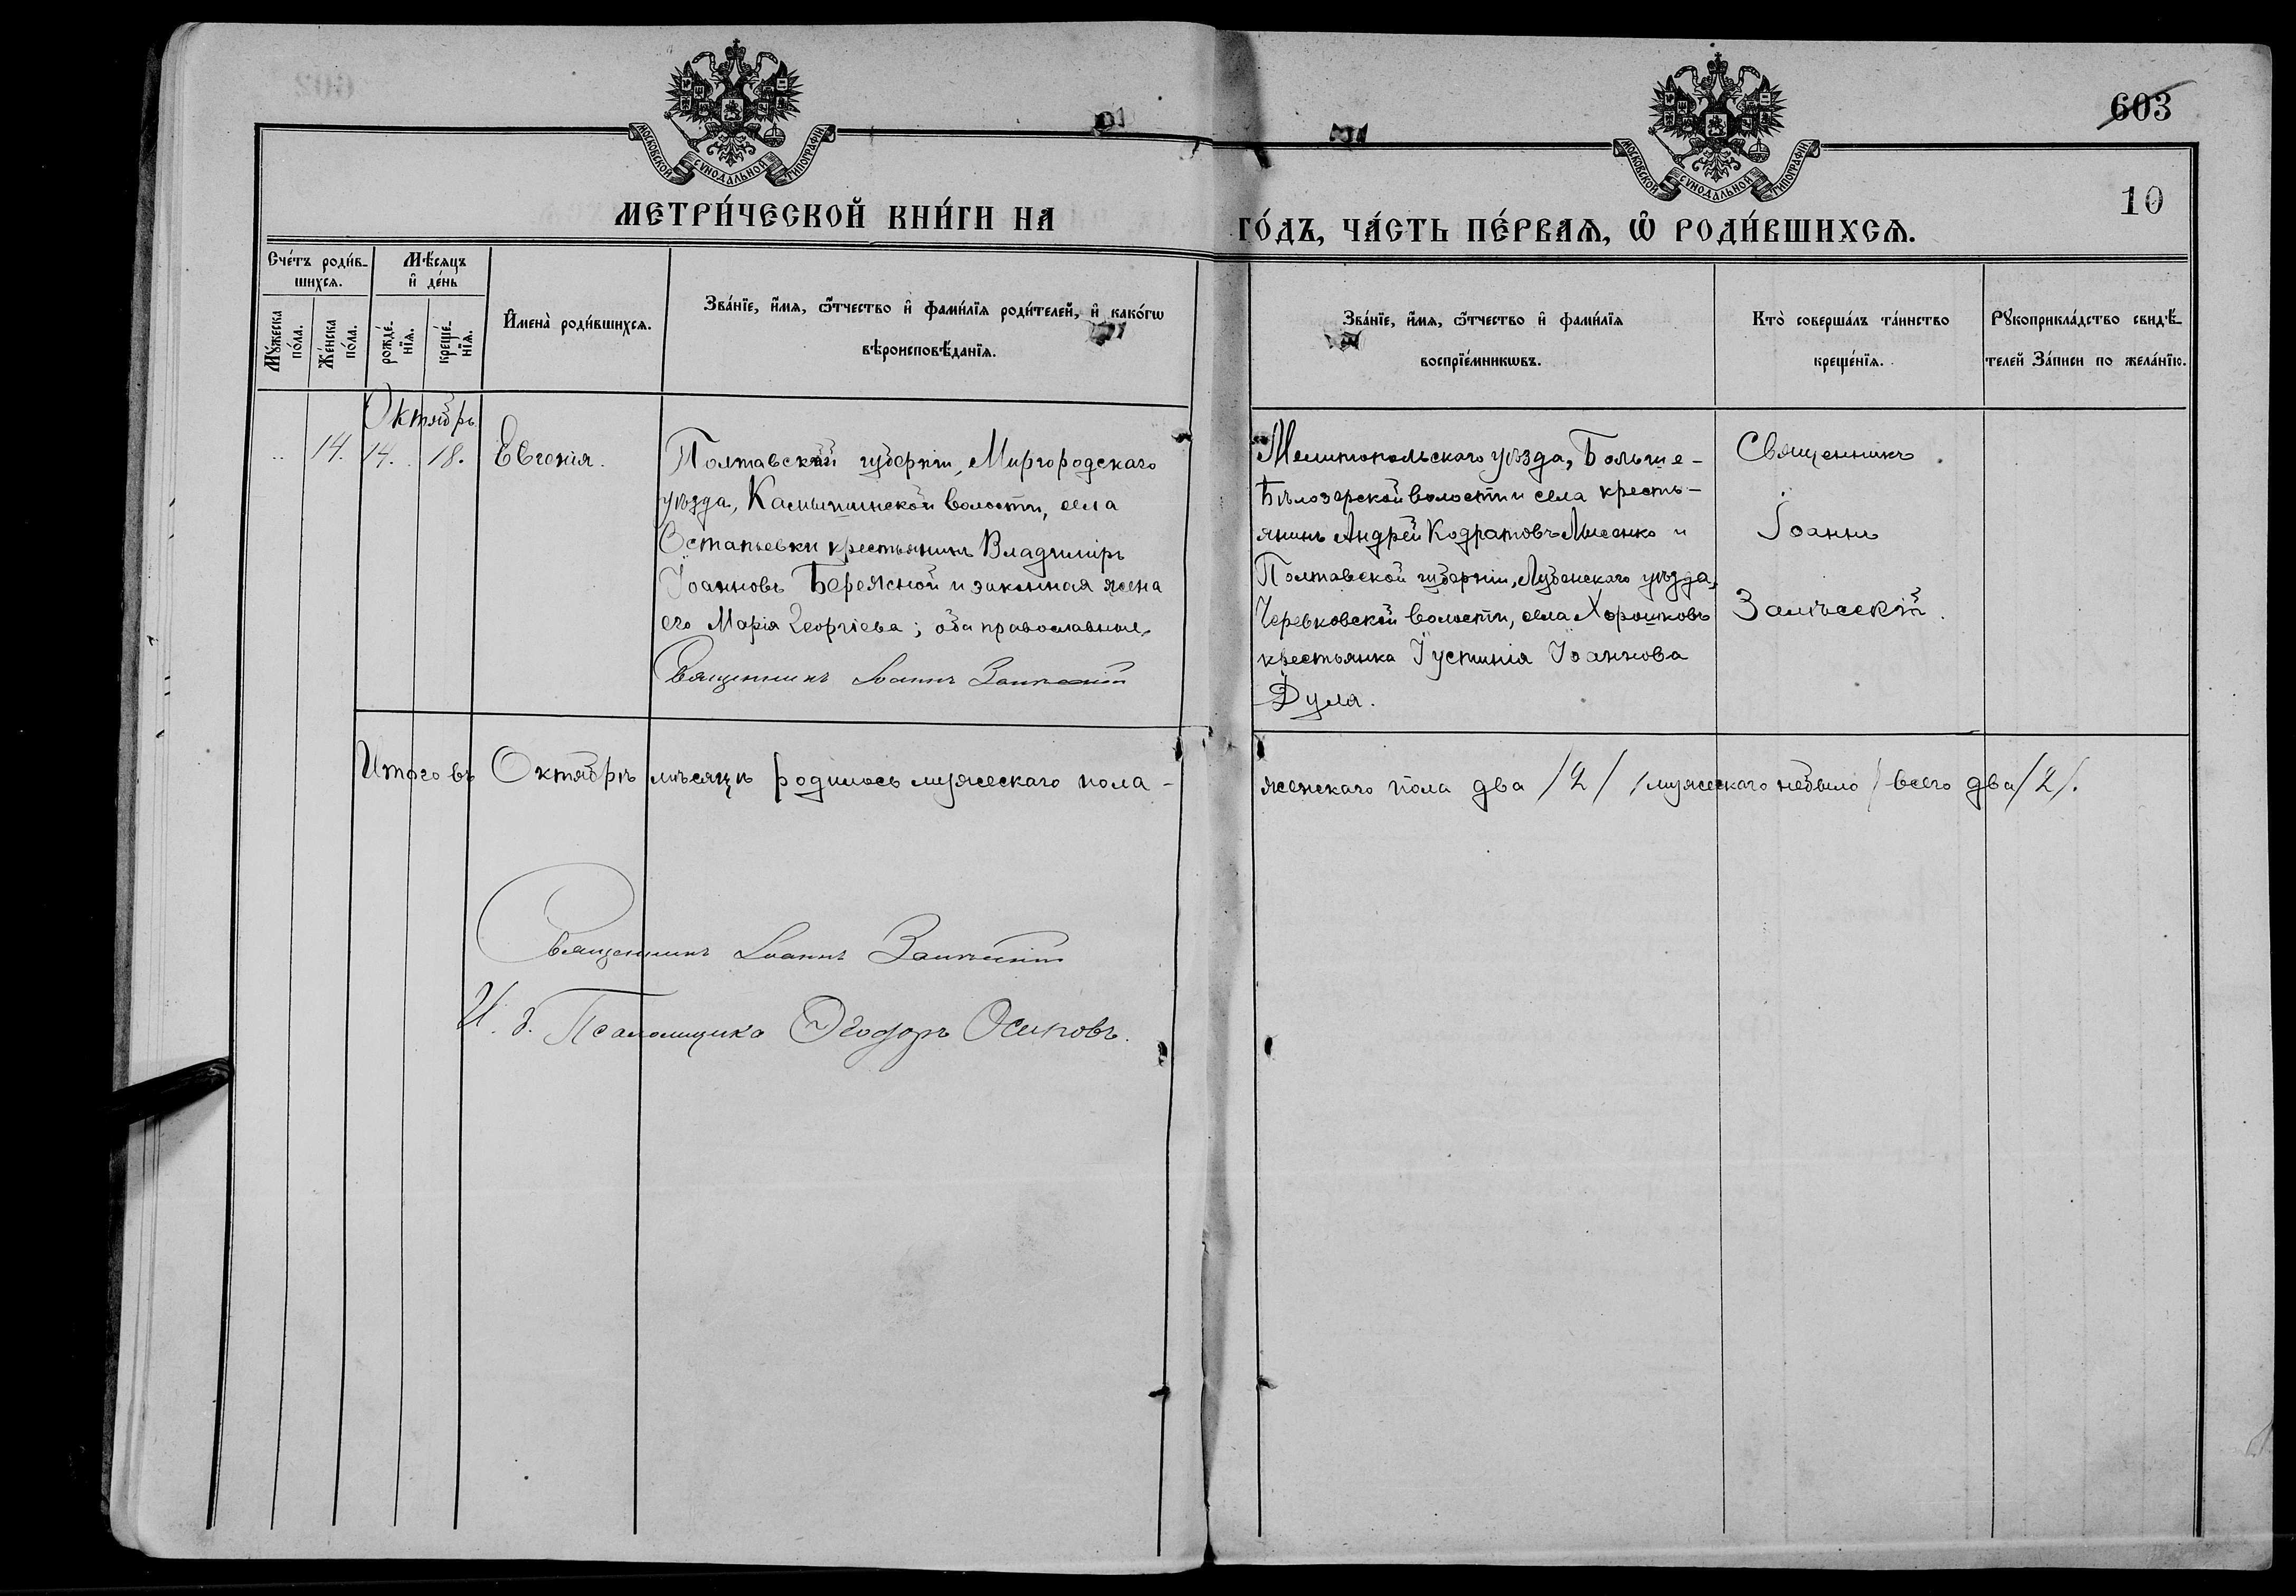 603
10
МОСКОВСКОЙ СѴНОДАЛЬНОЙ ТИПОГРАФІИ
МОСКОВСКОЙ СѴНОДАЛЬНОЙ ТИПОГРАФІИ
МЕТРИ́ЧЕСКОЙ КНИ́ГИ НА
ГО́ДЪ, ЧА́СТЬ ПЕ́РВАѦ, Ѡ҆ РОДИ́ВШИХСѦ.
Сче́тъ роди́в-
шихсѧ.
Мꙋ́жеска
по́ла.
Же́нска
по́ла.
Мѣ́сѧцъ
и҆ де́нь
рожде́-
нїѧ.
креще́-
нїѧ.
И҆мена̀ роди́вшихсѧ.
Зва́нїе, и҆́мѧ, ѻ҆́тчество и҆ фами́лїѧ роди́телей, и҆ како́гѡ
вѣроисповѣ́данїѧ.
Зва́нїе, и҆́мѧ, ѻ҆́тчество и҆ фами́лїѧ
воспрїе́мникѡвъ.
Кто̀ соверша́лъ та́инство
креще́нїѧ.
Рꙋкоприкла́дство свидѣ́-
телей За́писи по жела́нїю.
Октябрь
.. 14. 14. 18. Евгенія.
Полтавской губерніи, Миргородскаго
уѣзда, Камышинской волости, села
Остапьевки крестьянинъ Владиміръ
Іоанновъ Бережной и законная жена
его Марія Георгіева; оба православные.
Священникъ Іоаннъ Залѣсскій
Мелитопольскаго уѣзда, Больше-
Бѣлозерской волости и села кресть-
янинъ Андрей Кодратовъ Лисенко и
Полтавской губерніи, Лубенскаго уѣзда,
Черевковской волости, села Хорошковъ
крестьянка Іустинія Іоаннова
Дуля.
Священникъ
Іоаннъ
Залѣсскій.
Итого въ Октябрѣ мѣсяцѣ родилось мужескаго пола -
женскаго пола два /2/ /мужескаго небыло/ всего два /2/.
Священникъ Іоаннъ Залѣсскій
И. д. Псаломщика Ѳеодоръ Осиповъ.